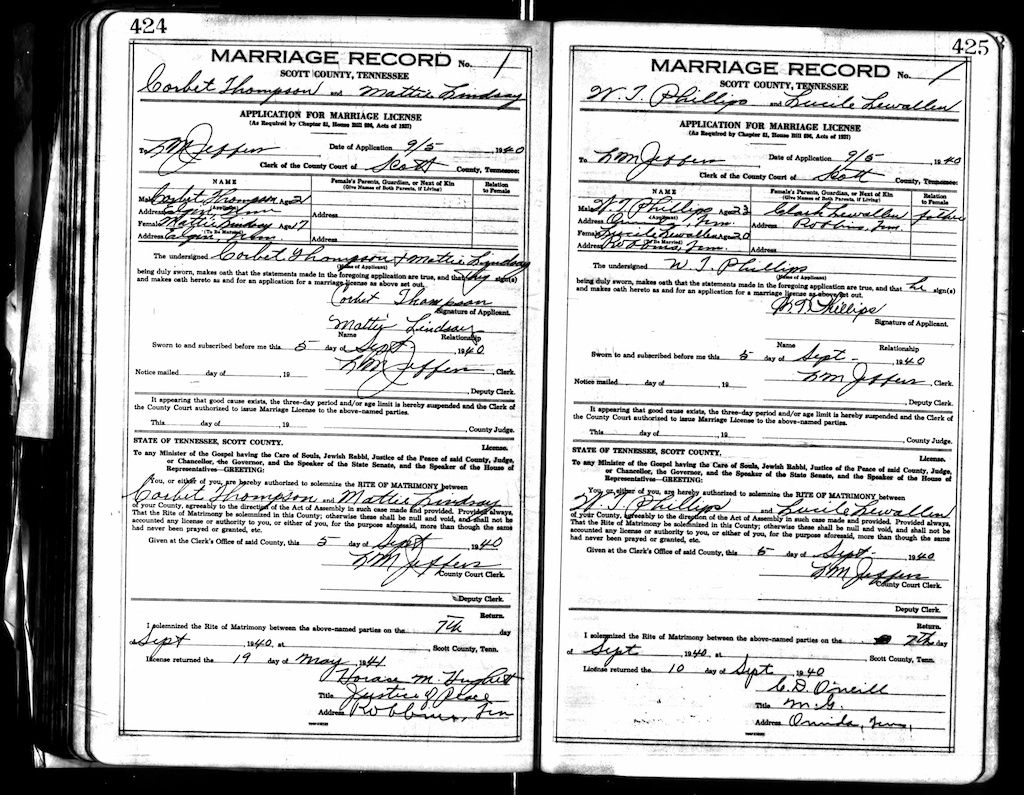 424
MARRIAGE RECORD No. 1
SCOTT COUNTY, TENNESSEE
Corbet Thompson and Mattie Lindsay
APPLICATION FOR MARRIAGE LICENSE
(As Required by Chapter 81, House Bill 596, Acts of 1937)
To L M Jeffers Date of Application 9/5, 1940
Clerk of the County Court of Scott County, Tennessee:
NAME Female's Parents, Guardian, or Next of Kin Relation
(Give Names of Both Parents, if Living) to Female
Male Corbet Thompson Age 21
(Applicant)
Address Elgin, Tenn Address
Female Mattie Lindsay Age 17
(To Be Married)
Address Elgin, Tenn Address
The undersigned Corbet Thompson & Mattie Lindsay
(Name of Applicant)
being duly sworn, makes oath that the statements made in the foregoing application are true, and that they sign(s)
and makes oath hereto as and for an application for a marriage license as above set out.
Corbet Thompson
Signature of Applicant.
Mattie Lindsay
Name Relationship
Sworn to and subscribed before me this 5 day of Sept, 1940
L M Jeffers, Clerk.
Notice mailed day of , 19
, Deputy Clerk.
It appearing that good cause exists, the three-day period and/or age limit is hereby suspended and the Clerk of
the County Court authorized to issue Marriage License to the above-named parties.
This day of , 19 .
, County Judge.
STATE OF TENNESSEE, SCOTT COUNTY. License.
To any Minister of the Gospel having the Care of Souls, Jewish Rabbi, Justice of the Peace of said County, Judge,
or Chancellor, the Governor, and the Speaker of the State Senate, and the Speaker of the House of
Representatives—GREETING:
You, or either of you, are hereby authorized to solemnize the RITE OF MATRIMONY between
Corbet Thompson and Mattie Lindsay
of your County, agreeably to the direction of the Act of Assembly in such case made and provided. Provided always,
That the Rite of Matrimony be solemnized in this County; otherwise these shall be null and void, and shall not be
accounted any license or authority to you, or either of you, for the purpose aforesaid, more than though the same
had never been prayed or granted, etc.
Given at the Clerk's Office of said County, this 5 day of Sept, 1940
L M Jeffers
County Court Clerk.
Deputy Clerk.
Return.
I solemnized the Rite of Matrimony between the above-named parties on the 7th day
of Sept, 1940, at , Scott County, Tenn.
License returned the 19 day of May, 1941
Horace M. Hughett
Title Justice of Peace
Address Robbins, Ten
425
MARRIAGE RECORD No. 1
SCOTT COUNTY, TENNESSEE
W. T. Phillips and Lucile Lewallen
APPLICATION FOR MARRIAGE LICENSE
(As Required by Chapter 81, House Bill 596, Acts of 1937)
To L M Jeffers Date of Application 9/5, 1940
Clerk of the County Court of Scott County, Tennessee:
NAME Female's Parents, Guardian, or Next of Kin Relation
(Give Names of Both Parents, if Living) to Female
Male W T Phillips Age 23 Clark Lewallen father
(Applicant)
Address Tenn. Address Robbins, Tenn.
Female Lucile Lewallen Age 20
(To Be Married)
Address Robbins, Tenn. Address
The undersigned W. T. Phillips
(Name of Applicant)
being duly sworn, makes oath that the statements made in the foregoing application are true, and that he sign(s)
and makes oath hereto as and for an application for a marriage license as above set out.
W. T. Phillips
Signature of Applicant.
Name Relationship
Sworn to and subscribed before me this 5 day of Sept-, 1940
L M Jeffers, Clerk.
Notice mailed day of , 19
, Deputy Clerk.
It appearing that good cause exists, the three-day period and/or age limit is hereby suspended and the Clerk of
the County Court authorized to issue Marriage License to the above-named parties.
This day of , 19 .
, County Judge.
STATE OF TENNESSEE, SCOTT COUNTY. License.
To any Minister of the Gospel having the Care of Souls, Jewish Rabbi, Justice of the Peace of said County, Judge,
or Chancellor, the Governor, and the Speaker of the State Senate, and the Speaker of the House of
Representatives—GREETING:
You, or either of you, are hereby authorized to solemnize the RITE OF MATRIMONY between
W. T. Phillips and Lucile Lewallen
of your County, agreeably to the direction of the Act of Assembly in such case made and provided. Provided always,
That the Rite of Matrimony be solemnized in this County; otherwise these shall be null and void, and shall not be
accounted any license or authority to you, or either of you, for the purpose aforesaid, more than though the same
had never been prayed or granted, etc.
Given at the Clerk's Office of said County, this 5 day of Sept-, 1940
L M Jeffers
County Court Clerk.
Deputy Clerk.
Return.
I solemnized the Rite of Matrimony between the above-named parties on the 7th day
of Sept, 1940, at , Scott County, Tenn.
License returned the 10 day of Sept, 1940
C. D. O'neill
Title M. G.
Address Onieda, Tenn,